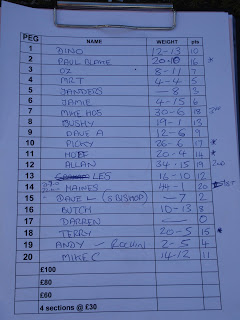 PEG NAME WEIGHT pts
1 DINO 12-13 10
2 PAUL BLAKE 20-10 16 *
3 OZ 8-11 7
4 MRT 4-4 5
5 JANDERS -8 3
6 JAMIE 4-15 6
7 MIKE HGS 30-6 18 3RD
8 BUSHY 19-1 13
9 DAVE A 12-6 9
10 PICKY 26-6 17 *
11 20-4 14 *
12 ALLAN 34-15 19 2ND
13 LES 16-10 12
14 HAINES 44-1 20 1ST
15 DAVE L (S BISHOP) -7 2
16 BUTCH 10-13 8
17 DARREN — 0
18 TERRY 20-5 15 *
19 ANDY - 2-5 4
20 MIKE C 14-12 11
£100
£80
£60
4 sections @ £30